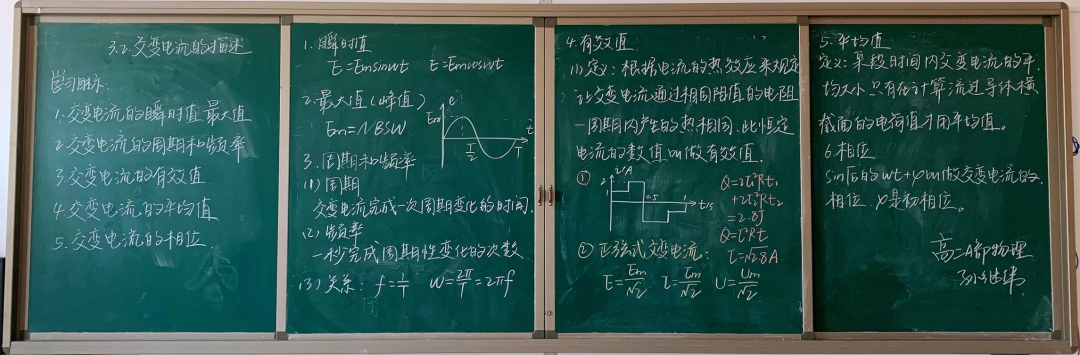 3.2.交变电流的描述
学习目标:
1.交变电流的瞬时值 最大值
2.交变电流的周期和频率
3.交变电流的有效值
4.交变电流的平均值
5.交变电流的相位
1.瞬时值
E=Emsinwt E=Emcoswt
2.最大值(峰值)
Em=NBSW
e
Em
T/2
T
t
3.周期和频率
(1)周期
交变电流完成一次周期变化的时间
(2)频率
一秒完成周期性变化的次数
(3)关系: f=1/T W=2π/T=2πf
4.有效值
(1)定义:根据电流的热效应来规定
交变电流通过相同阻值的电阻
一周期内产生的热相同,此恒定
电流的数值叫做有效值.
①
i/A
2
0.5
1
t/s
Q=2I₁²Rt₁
+2I₂²Rt₂
=2.8J
Q=I²Rt
I=√2.8A
②正弦式交变电流:
E=Em/√2 I=Im/√2 U=Um/√2
5.平均值
定义:某段时间内交变电流的平
均大小.只有在计算流过导体横
截面的电荷值才用平均值。
6.相位
sin后的wt+φ叫做交变电流的
相位 φ是初相位。
高二A部物理